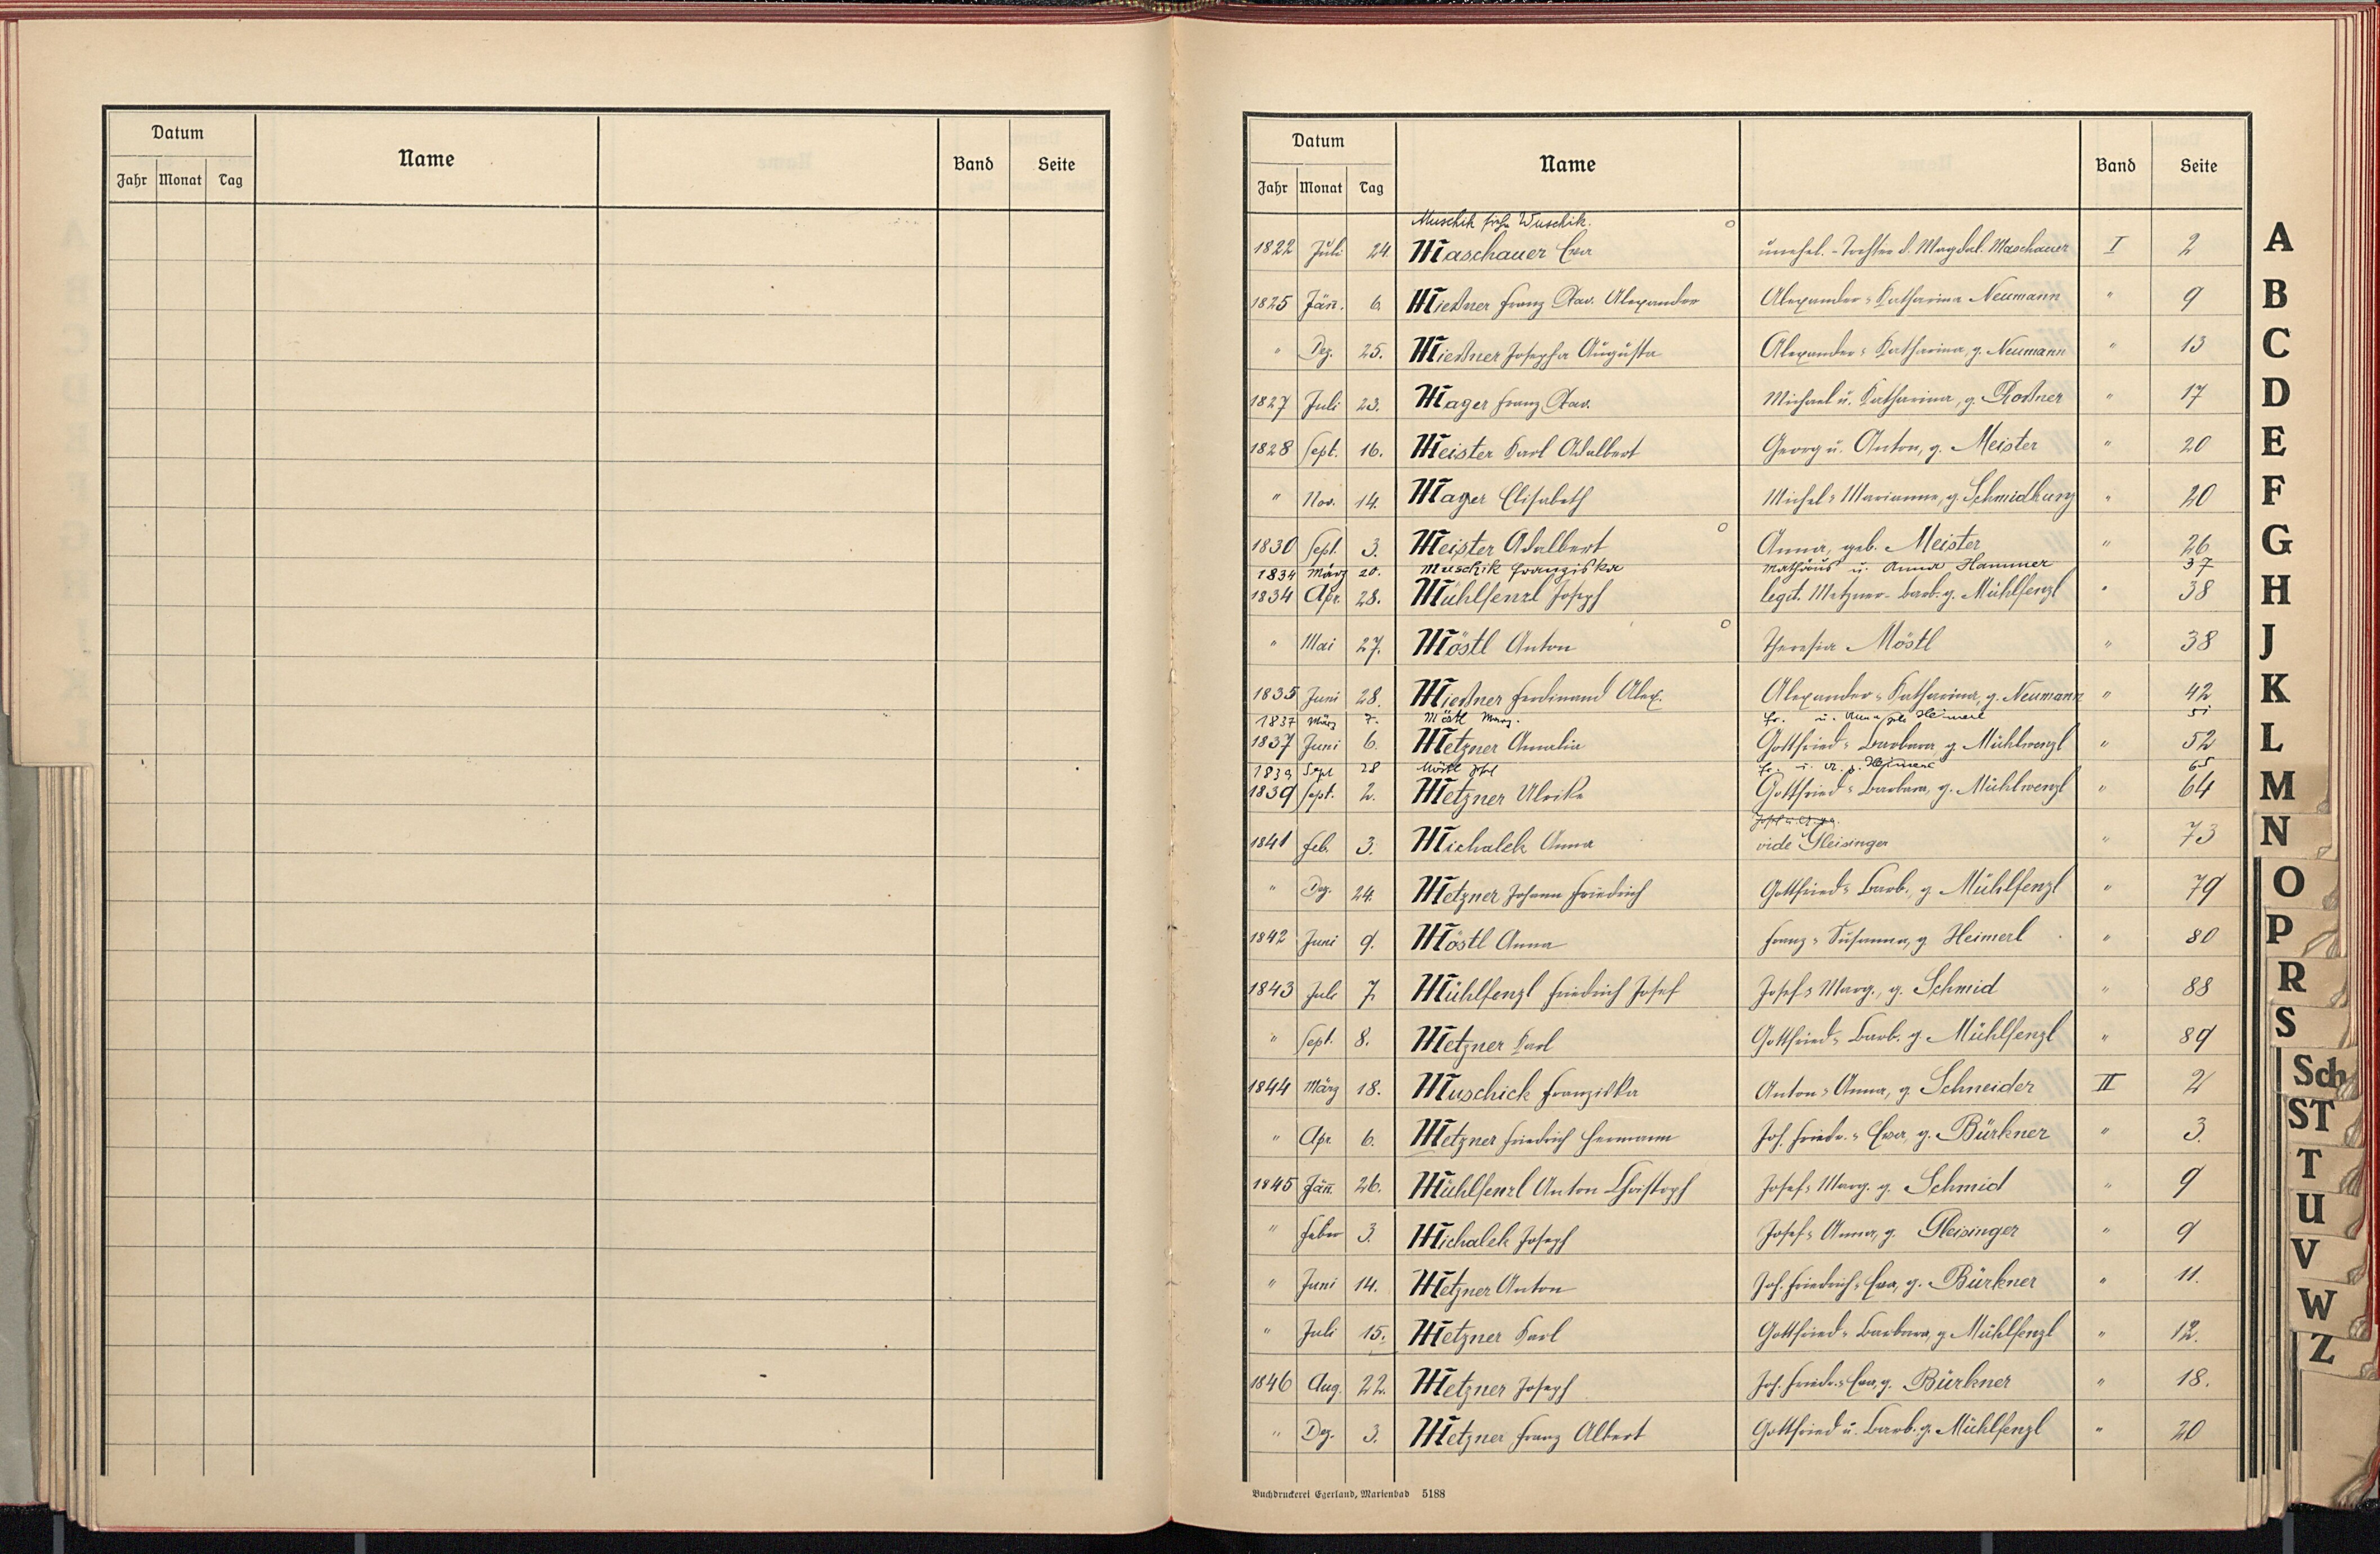 Datum
Name
Band
Seite
Jahr Monat Tag
Datum
Name
Band
Seite
Jahr Monat Tag
Muschik siehe Wuschik.
1822 Juli 24. Maschauer Eva unehel. Tochter d. Magdal. Maschauer I 2
1825 Jän. 6. Mießner Franz Xav. Alexander Alexander " Katharina Neumann " 9
" Dez. 25. Mießner Josepha Augusta Alexander " Katharina, g. Neumann " 13
1827 Juli 23. Mager Franz Xav. Michael u. Katharina, g. " 17
1828 Sept. 16. Meister Karl Adalbert Georg u. Anton, g. Meister " 20
" Nov. 14. Mayer Elisabeth Michel " Marianna, g. Schmidkunz " 20
1830 Sept. 3. Meister Adalbert Anna, geb. Meister " 26
1834 März 20. Muschik Franziska Mathäus u. Anna Hammer 37
1834 Apr. 28. Mühlfenzl Joseph legit. Metzner - Barb. g. Mühlfenzl " 38
" Mai 27. Möstl Anton Theresia Möstl " 38
1835 Juni 28. Mießner Ferdinand Alex. Alexander " Katharina, g. Neumann " 42
1837 März 7. Möstl Marg. Fr. u. Anna geb. Heimerl 51
1837 Juni 6. Metzner Amalia Gottfried " Barbara g. Mühlwenzl " 52
1839 Sept 28 Möstl Josef Fr. u. A. g. Heimerl 65
1839 Sept. 2. Metzner Ulrike Gottfried " Barbara, g. Mühlwenzl " 64
1841 Feb. 3. Michalek Anna vide Gleisinger " 73
" Dez. 24. Metzner Johann Friedrich Gottfried " Barb., g. Mühlfenzl " 79
1842 Juni 9. Möstl Anna Franz " Susanna, g. Heimerl " 80
1843 Juli 7. Mühlfenzl Friedrich Josef Josef " Marg., g. Schmid " 88
" Sept. 8. Metzner Karl Gottfried " Barb. g. Mühlfenzl " 89
1844 März 18. Muschick Franziska Anton " Anna, g. Schneider II 2
" Apr. 6. Metzner Friedrich Hermann Joh. Friedr. " Eva, g. Bürkner " 3.
1845 Jän. 26. Mühlfenzl Anton Christoph Josef " Marg. g. Schmid " 9
" Feber 3. Michalek Joseph Josef " Anna, g. Gleisinger " 9
" Juni 14. Metzner Anton Joh. Friedrich " Eva, g. Bürkner " 11.
" Juli 15. Metzner Karl Gottfried " Barbara, g. Mühlfenzl " 12.
1846 Aug. 22. Metzner Joseph Joh. Friedr. " Eva, g. Bürkner " 18.
" Dez. 3. Metzner Franz Albert Gottfried u. Barb. g. Mühlfenzl " 20
Buchdruckerei Egerland, Marienbad 5188
A
B
C
D
E
F
G
H
J
K
L
M
N
O
P
R
S
Sch
ST
T
U
V
W
Z